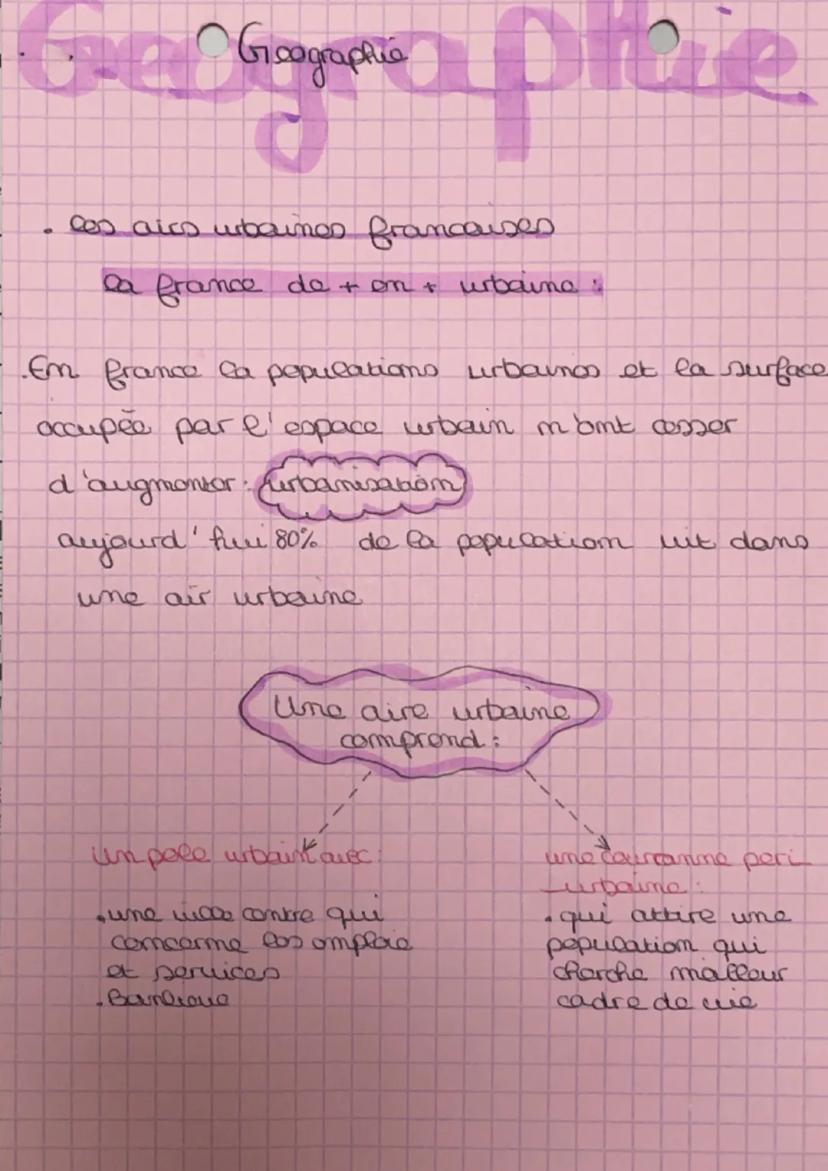 Geographie
Geographie
. les airs urbaines francaises
la france de + en + urbaine :
.En france la populations urbaines et la surface
occupée par l'espace urbain n'ont cesser
d'augmenter : urbanisation
aujourd'hui 80% de la population vit dans
une air urbaine
Une aire urbaine
comprend :
un pole urbain avec :
.une ville centre qui
concerne les emploie
et services
.Banlieue
une couronne peri
-urbaine :
.qui attire une
population qui
cherche meilleur
cadre de vie